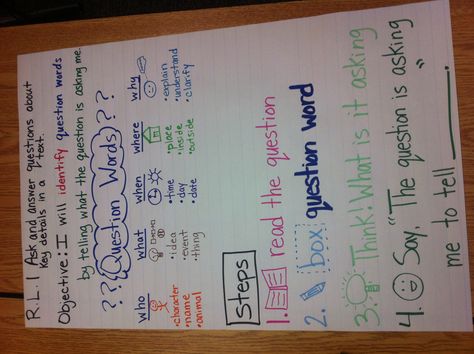 R.L. 1 Ask and answer questions about
key details in a text.
Objective: I will identify question words
by telling what the question is asking me.
??? Question Words ???
who what when where why
•character •idea •time •place •explain
•name •event •day •inside •understand
•animal •thing •date •outside •clarify
Steps
1. read the question
2. box question word
3. Think: What is it asking
4. Say, "The question is asking
me to tell ____."